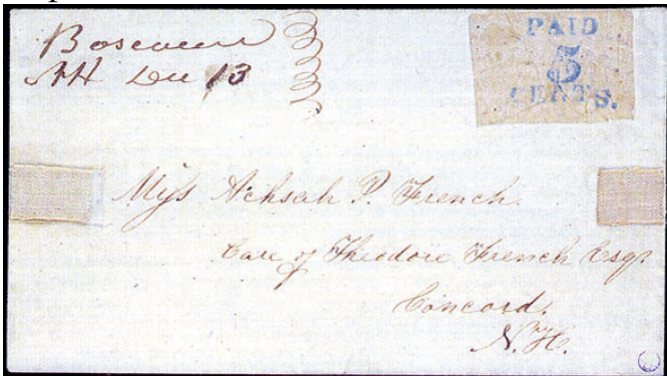 Boscawen
NH Dec 13
PAID
5
CENTS.
Miss Achsah P. French
Care of Theodore French Esqr.
Concord.
N. H.